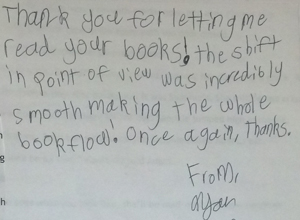 Thank you for letting me
read your books! the shift
in point of view was incredibly
smooth making the whole
book flow! Once again, Thanks.
From,